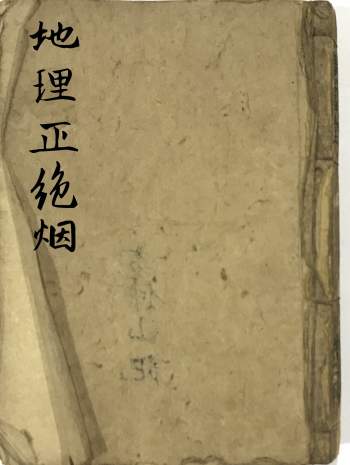 地理正绝烟